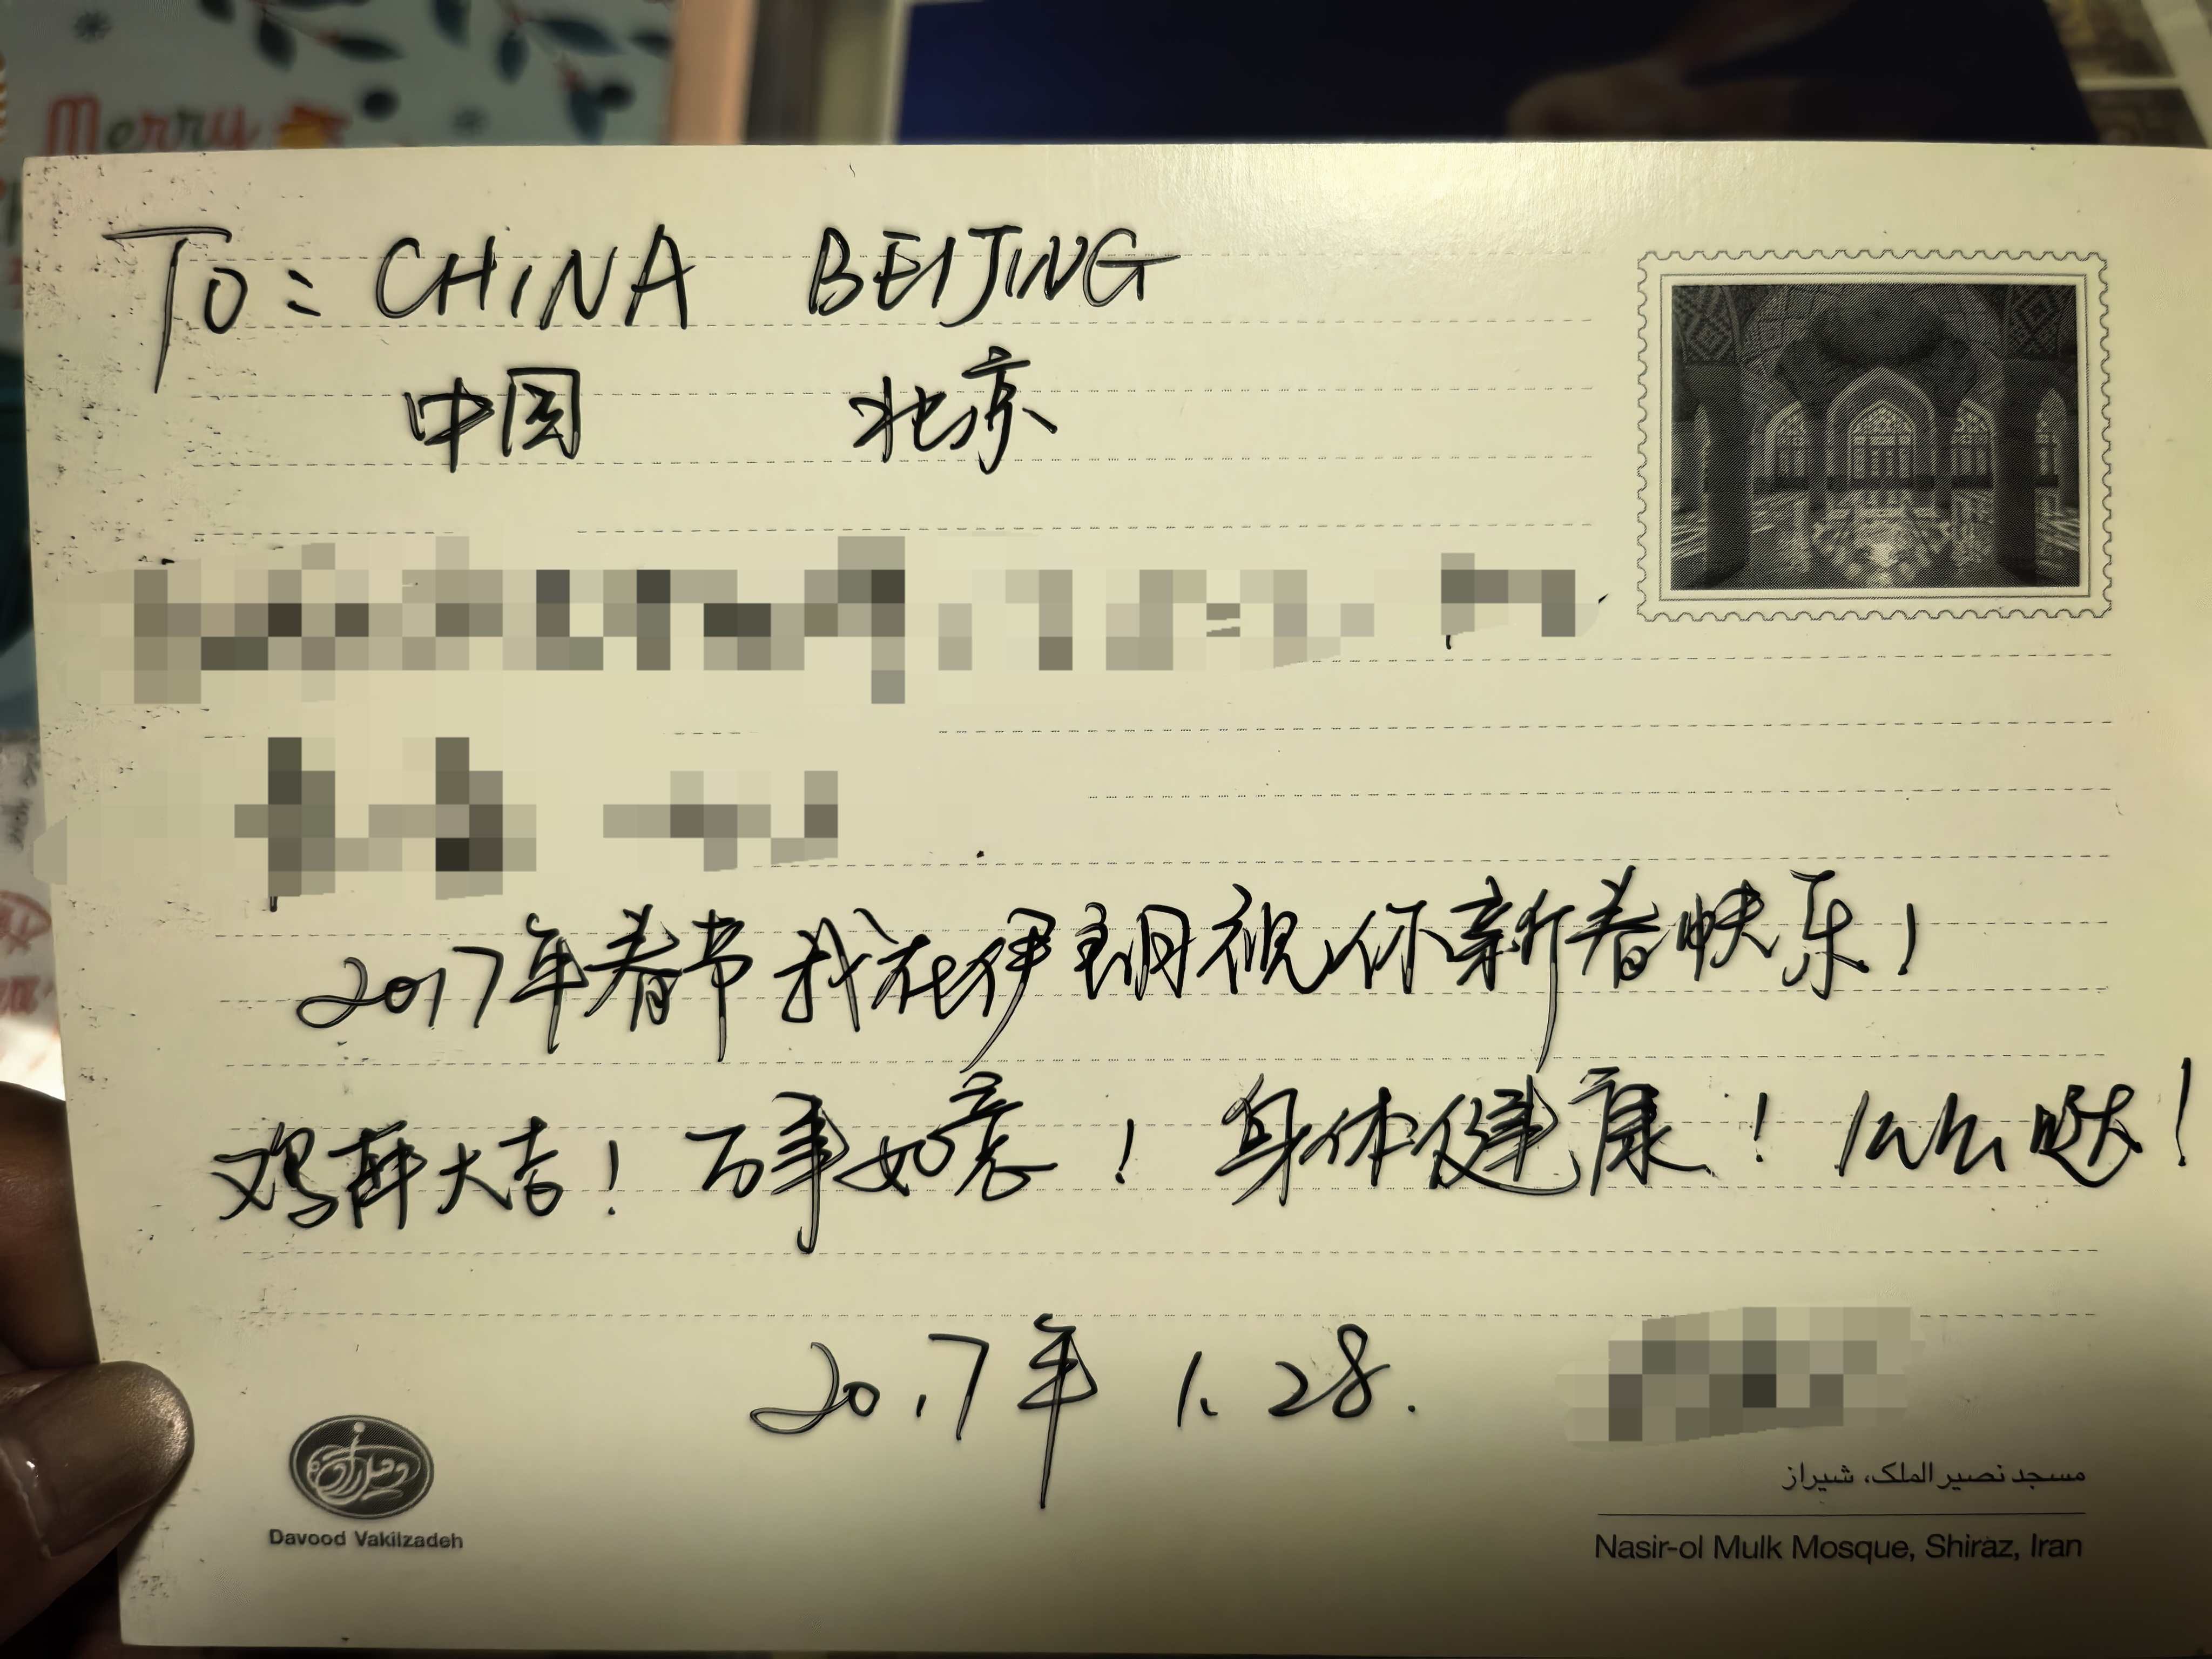 Merry
TO: CHINA BEIJING
中国 北京
2017年春节我在伊朗祝你新春快乐!
鸡年大吉! 万事如意! 身体健康! 么么哒!
2017年 1. 28.
مسجد نصیرالملک، شیراز
Davood Vakilzadeh
Nasir-ol Mulk Mosque, Shiraz, Iran